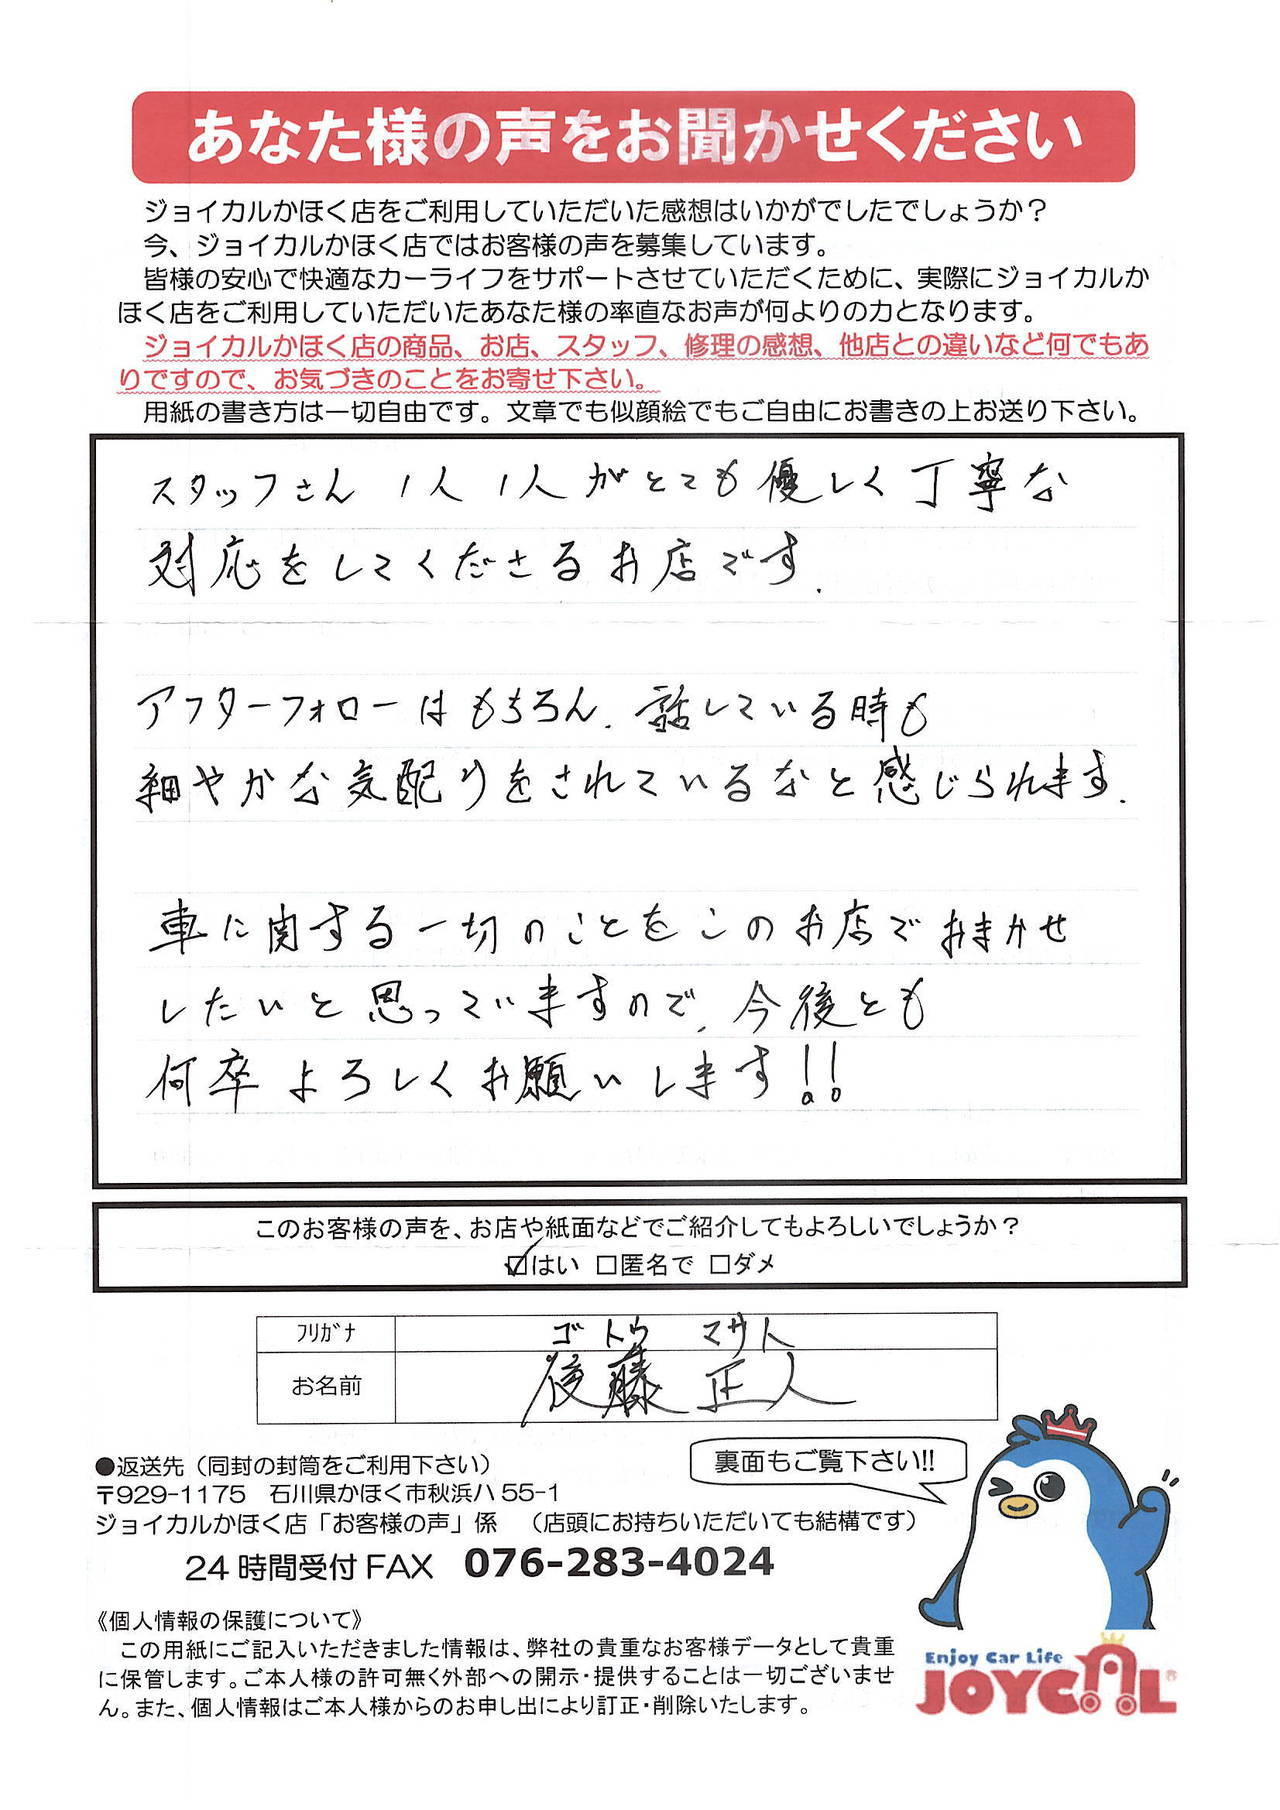 あなた様の声をお聞かせください
ジョイカルかほく店をご利用していただいた感想はいかがでしたでしょうか？
今、ジョイカルかほく店ではお客様の声を募集しています。
皆様の安心で快適なカーライフをサポートさせていただくために、実際にジョイカルか
ほく店をご利用していただいたあなた様の率直なお声が何よりの力となります。
ジョイカルかほく店の商品、お店、スタッフ、修理の感想、他店との違いなど何でもあ
りですので、お気づきのことをお寄せ下さい。
用紙の書き方は一切自由です。文章でも似顔絵でもご自由にお書きの上お送り下さい。
スタッフさん1人1人がとても優しく丁寧な
対応をしてくださるお店です.
アフターフォローはもちろん.話している時も
細やかな気配りをされているなと感じられます.
車に関する一切のことをこのお店でおまかせ
したいと思っていますので.今後とも
何卒よろしくお願いします!!
このお客様の声を、お店や紙面などでご紹介してもよろしいでしょうか？
☑はい □匿名で □ダメ
ﾌﾘｶﾞﾅ ゴトウ マサト
お名前 後藤 正人
裏面もご覧下さい!!
●返送先（同封の封筒をご利用下さい）
〒929-1175 石川県かほく市秋浜ハ55-1
ジョイカルかほく店「お客様の声」係 （店頭にお持ちいただいても結構です）
24時間受付FAX 076-283-4024
《個人情報の保護について》
この用紙にご記入いただきました情報は、弊社の貴重なお客様データとして貴重
に保管します。ご本人様の許可無く外部への開示・提供することは一切ございませ
ん。また、個人情報はご本人様からのお申し出により訂正・削除いたします。
Enjoy Car Life
JOYCAL®